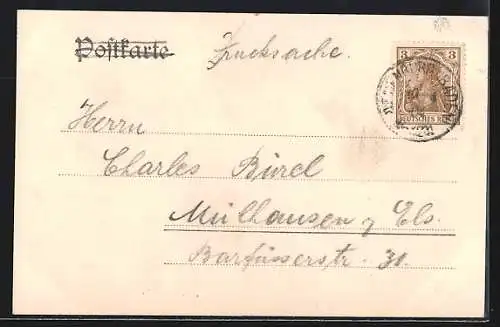 Postkarte Drucksache.
3 3
DEUTSCHES REICH
Herrn
Charles Bürel
Mülhausen i/ Els.
Barfüsserstr. 31.